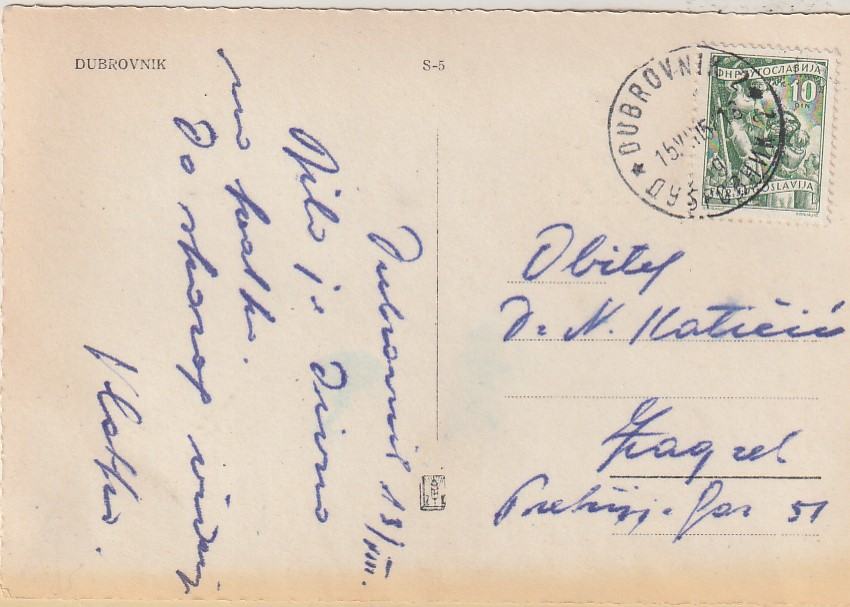 DUBROVNIK
S-5
Dubrovnik 13/VIII.
Bilo je divno
no kratko.
Do skorog viđenja
Vlatko.
DUBROVNIK 2
ДУБРОВНИК 2
ФНР ЈУГОСЛАВИЈА
10
DIN
FNR JUGOSLAVIJA
Obitelj
Dr N. Katičić
Zagreb
51